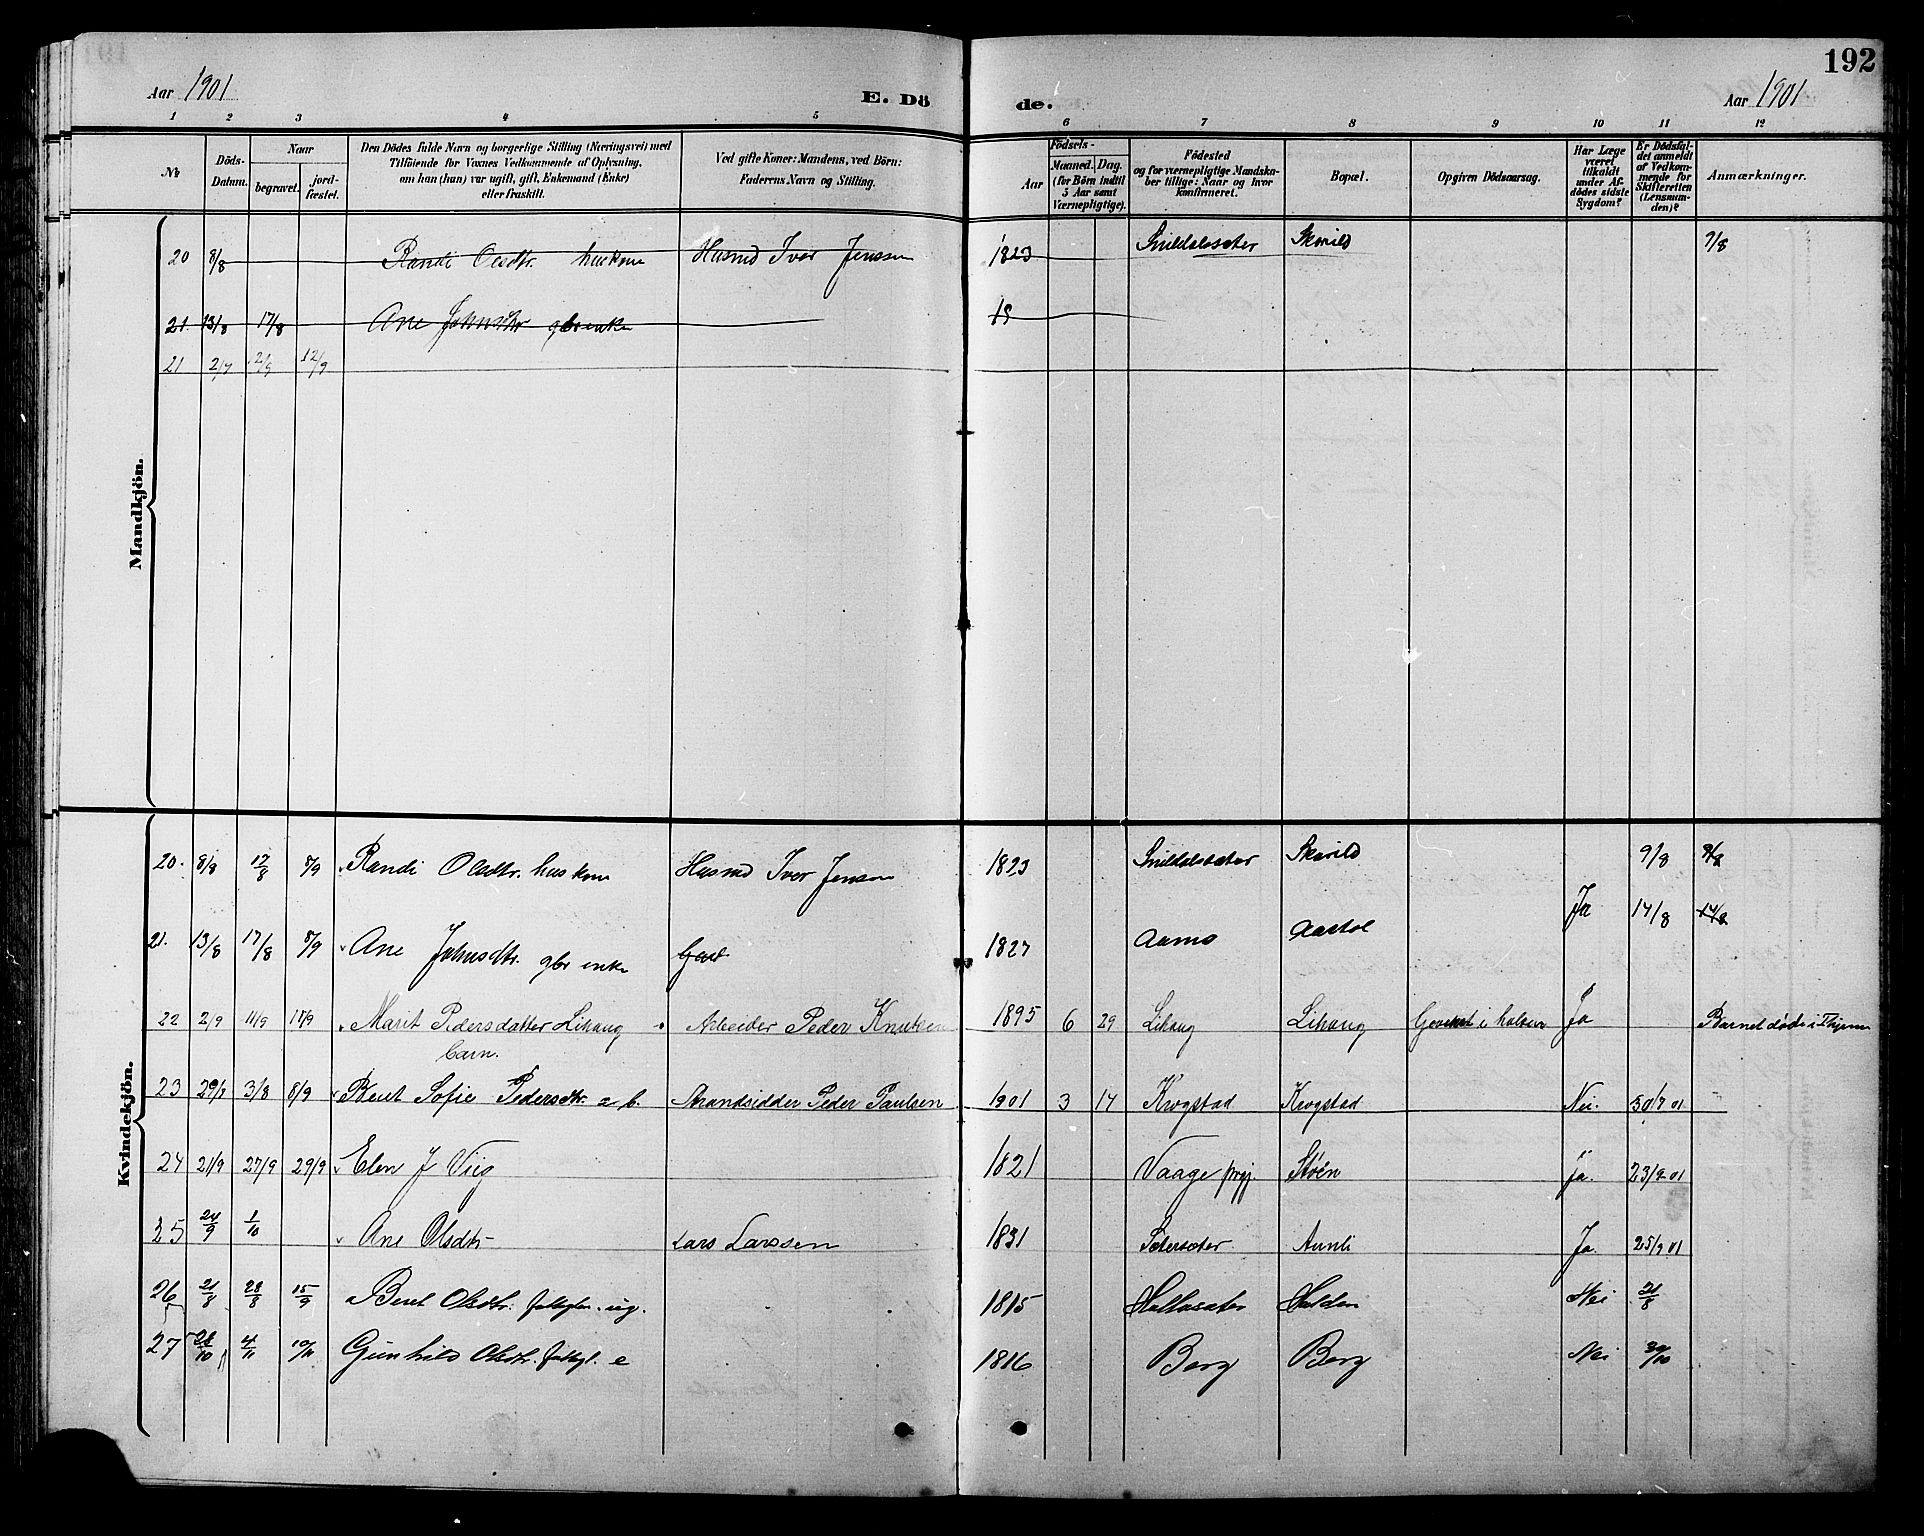 192
Aar 1901
E. Dö de.
Aar 1901
1 2 3 4 5 6 7 8 9 10 11 12
№
Döds-Datum.
Naar
begravet.
jord-fæstet.
Den Dödes fulde Navn og borgerlige Stilling (Næringsvei) med
Tilföiende for Voxnes Vedkommende af Oplysning,
om han (hun) var ugift, gift, Enkemand (Enke)
eller fraskilt.
Ved gifte Koner: Mandens, ved Börn:
Faderens Navn og Stilling.
Födsels-
Aar
Maaned. Dag.
(for Börn indtil
5 Aar samt
Værnepligtige).
Födested
og for værnepligtige Mandska-
ber tillige: Naar og hvor
konfirmeret.
Bopæl.
Opgiven Dödsaarsag.
Har Læge
været
tilkaldt
under Af-
dödes sidste
Sygdom?
Er Dödsfal-
det anmeldt
af Vedkom-
mende for
Skifteretten
(Lensman-
den)?
Anmærkninger.
Mandkjön.
20 8/8 Randi Olsdtr. huskone Husmd Iver Jenssen 1823 Snildalssæter Skorild 9/8
21 13/8 17/8 Ane Johnsdtr gbrenke 18
21 2/7 2/9 12/9
Kvindekjön.
20. 8/8 12/8 8/9 Randi Olsdtr. huskone Husmd Iver Jensen 1823 Snildalssæter Skorild 9/8 9/8
21. 13/8 17/8 8/9 Ane Johnsdtr. gbr enke 1827 Aamo Aastøl Ja 14/8 14/8
22 2/9 11/9 15/9 Marit Pedersdatter Lihaug Arbeider Peder Knutsen 1895 6 29 Lihaug Lihaug i halsen Ja Barnet døde i Thjem
barn.
23 29/7 3/8 8/9 Beret Sofie Pedersdtr. æ b. Strandsidder Peder Paulsen 1901 3 14 Krogstad Krogstad Nei. 30/7 01
24 21/9 27/9 29/9 Elen J Viig 1821 Vaage prgj. Støen Ja. 23/9 01
25 24/9 1/10 Ane Olsdtr Lars Larssen 1831 Sætersæter Aunli Ja 25/9 01
26 21/8 28/8 15/9 Beret Olsdtr. fattiglem. ug. 1815 Haltassæter Halden Nei 21/8
27 28/10 4/11 10/11 Gunhild Olsdtr. fattigl. e 1816 Berg Berg Nei 30/10